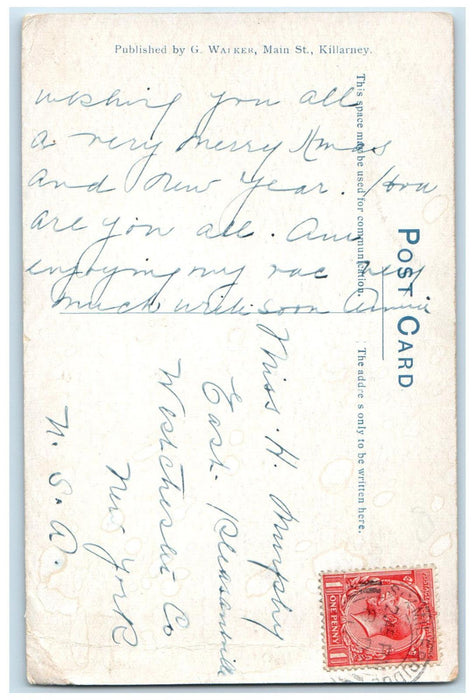 Published by G. WALKER, Main St., Killarney.
wishing you all
a very merry Xmas
and New Year. How
are you all. Am
enjoying my vac very
much will soon Annie
POST CARD
This space may be used for communication.
The address only to be written here.
Miss. H. Murphy
East. Pleasantville
Westchester Co
New York
U. S. A.
ONE PENNY